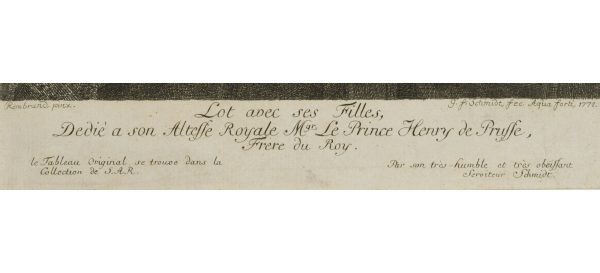 Rembrand. pinx.
G. F. Schmidt, fec. Aqua forti, 1771.
Lot avec ses Filles,
Dedié a son Altesse Royale Mgr. Le Prince Henry de Prusse,
Frere du Roy.
le Tableau Original, se trouve dans la
Collection de S.A.R.
Par son très-humble et très obeissant
Serviteur Schmidt.